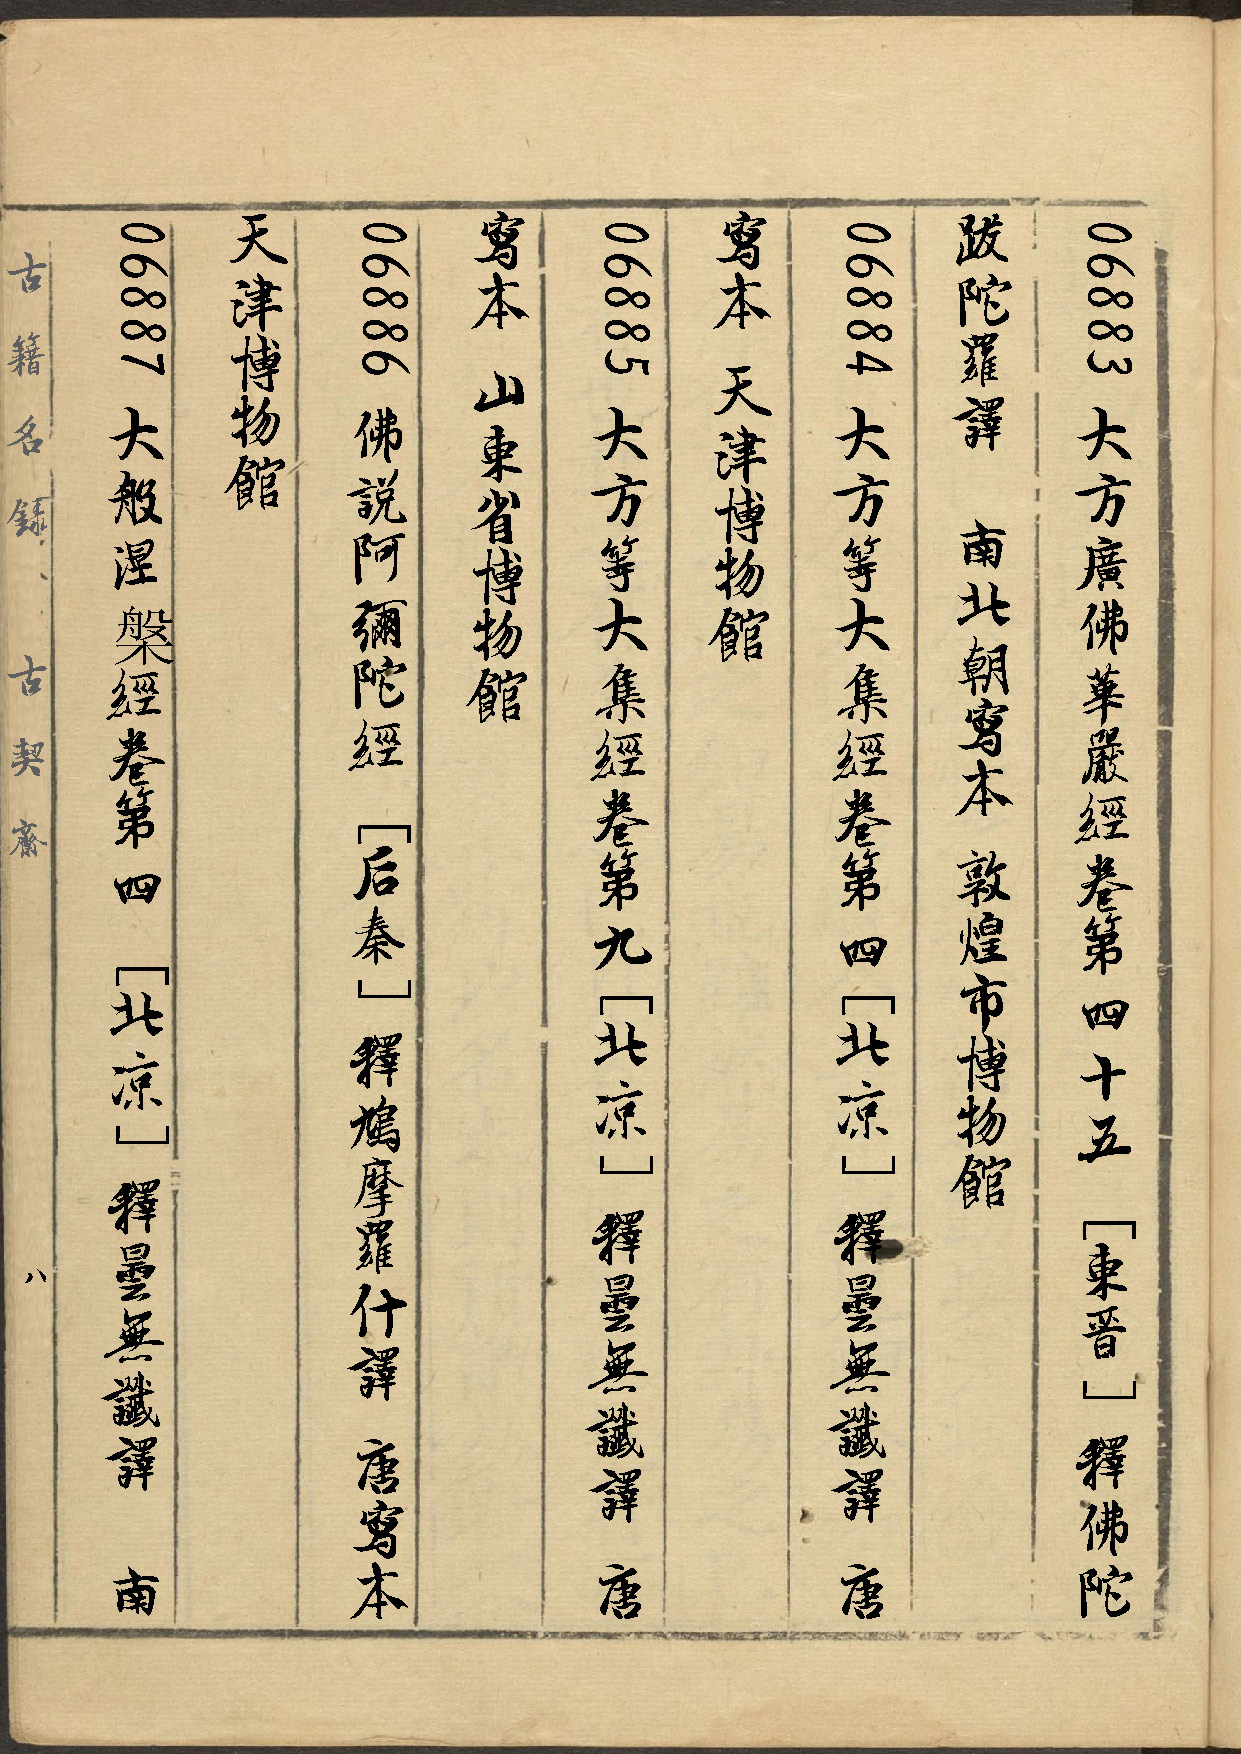 06883 大方廣佛華嚴經卷第四十五 [東晉] 釋佛陀
跋陀羅譯 南北朝寫本 敦煌市博物館
06884 大方等大集經卷第四[北凉] 釋曇無讖譯 唐
寫本 天津博物館
06885 大方等大集經卷第九[北凉] 釋曇無讖譯 唐
寫本 山東省博物館
06886 佛説阿彌陀經 [后秦] 釋鳩摩羅什譯 唐寫本
天津博物館
06887 大般涅槃經卷第四 [北凉] 釋曇無讖譯 南
古籍名録、古契齋
八